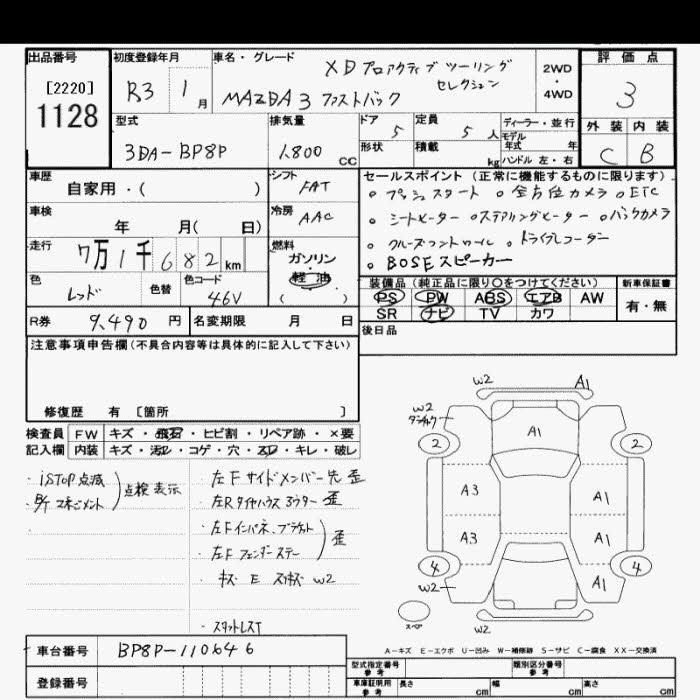 出品番号
[2220]
1128
初度登録年月
R3 1 月
車名・グレード
XD プロアクティブ ツーリング
セレクション
MAZDA3 ファストバック
2WD
・
4WD
評価点
3
外装 内装
C B
型式
3DA-BP8P
排気量
1,800 CC
ドア
5
定員
5 人
形状
積載
kg
ディーラー・並行
モデル
年式 年
ハンドル 左・右
車歴
自家用・( )
シフト
FAT
車検
年 月( 日)
冷房
AAC
走行
7万1千682km
燃料
ガソリン
・
軽油
( )
色
レッド
色替
色コード
46V
R券
9,490 円
名変期限 月 日
セールスポイント (正常に機能するものに限ります)
。プッシュスタート 。全方位カメラ 。ETC
。シートヒーター 。ステアリングヒーター 。バックカメラ
。クルーズコントロール 。ドライブレコーダー
。BOSEスピーカー
装備品 (純正品に限り○をつけてください)
PS PW ABS エアB AW
SR ナビ TV カワ
新車保証書
有・無
後日品
注意事項申告欄(不具合内容等は具体的に記入して下さい)
修復歴 有 [箇所 ]
検査員
記入欄
FW キズ・飛石・ヒビ割・リペア跡・×要
内装 キズ・汚レ・コゲ・穴・スレ・キレ・破レ
・iSTOP点滅
・B/T マネジメント
点検表示
・左Fサイドメンバー先 歪
・左Rタイヤハウス 歪
・左Fインパネ、ブラケット
・左Fフェンダーステー
歪
・キズ E スリキズ W2
・スタットレスT
W2 A1
W2
2 2
A1
A3 A1
A3 A1
4 4
W2 A1
スペア
W2
A-キズ E-エクボ U-凹み W-補修跡 S-サビ C-腐食 XX-交換済
車台番号
BP8P-110646
登録番号
型式指定番号
参考
類別区分番号
参考
車庫証明用
参考
長さ cm 幅 cm 高さ cm